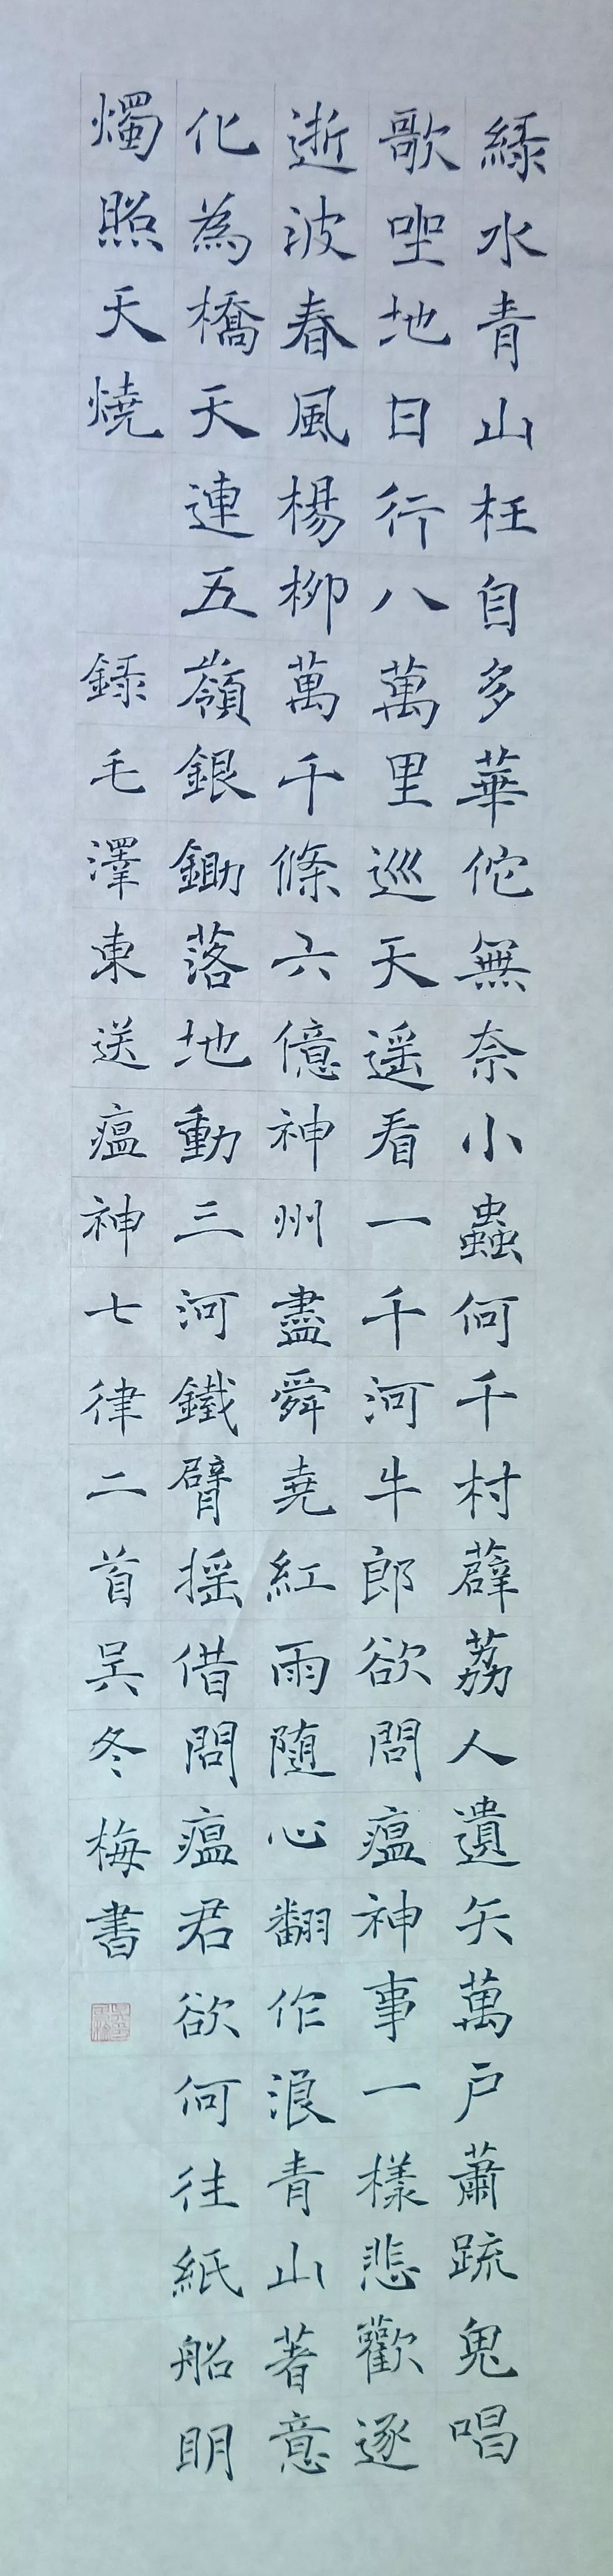 綠水青山枉自多華佗無奈小蟲何千村薜荔人遺矢萬戶蕭疏鬼唱
歌坐地日行八萬里巡天遥看一千河牛郎欲問瘟神事一樣悲歡逐
逝波春風楊柳萬千條六億神州盡舜堯紅雨隨心翻作浪青山著意
化為橋天連五嶺銀鋤落地動三河鐵臂摇借問瘟君欲何往紙船明
燭照天燒 錄毛澤東送瘟神七律二首吴冬梅書